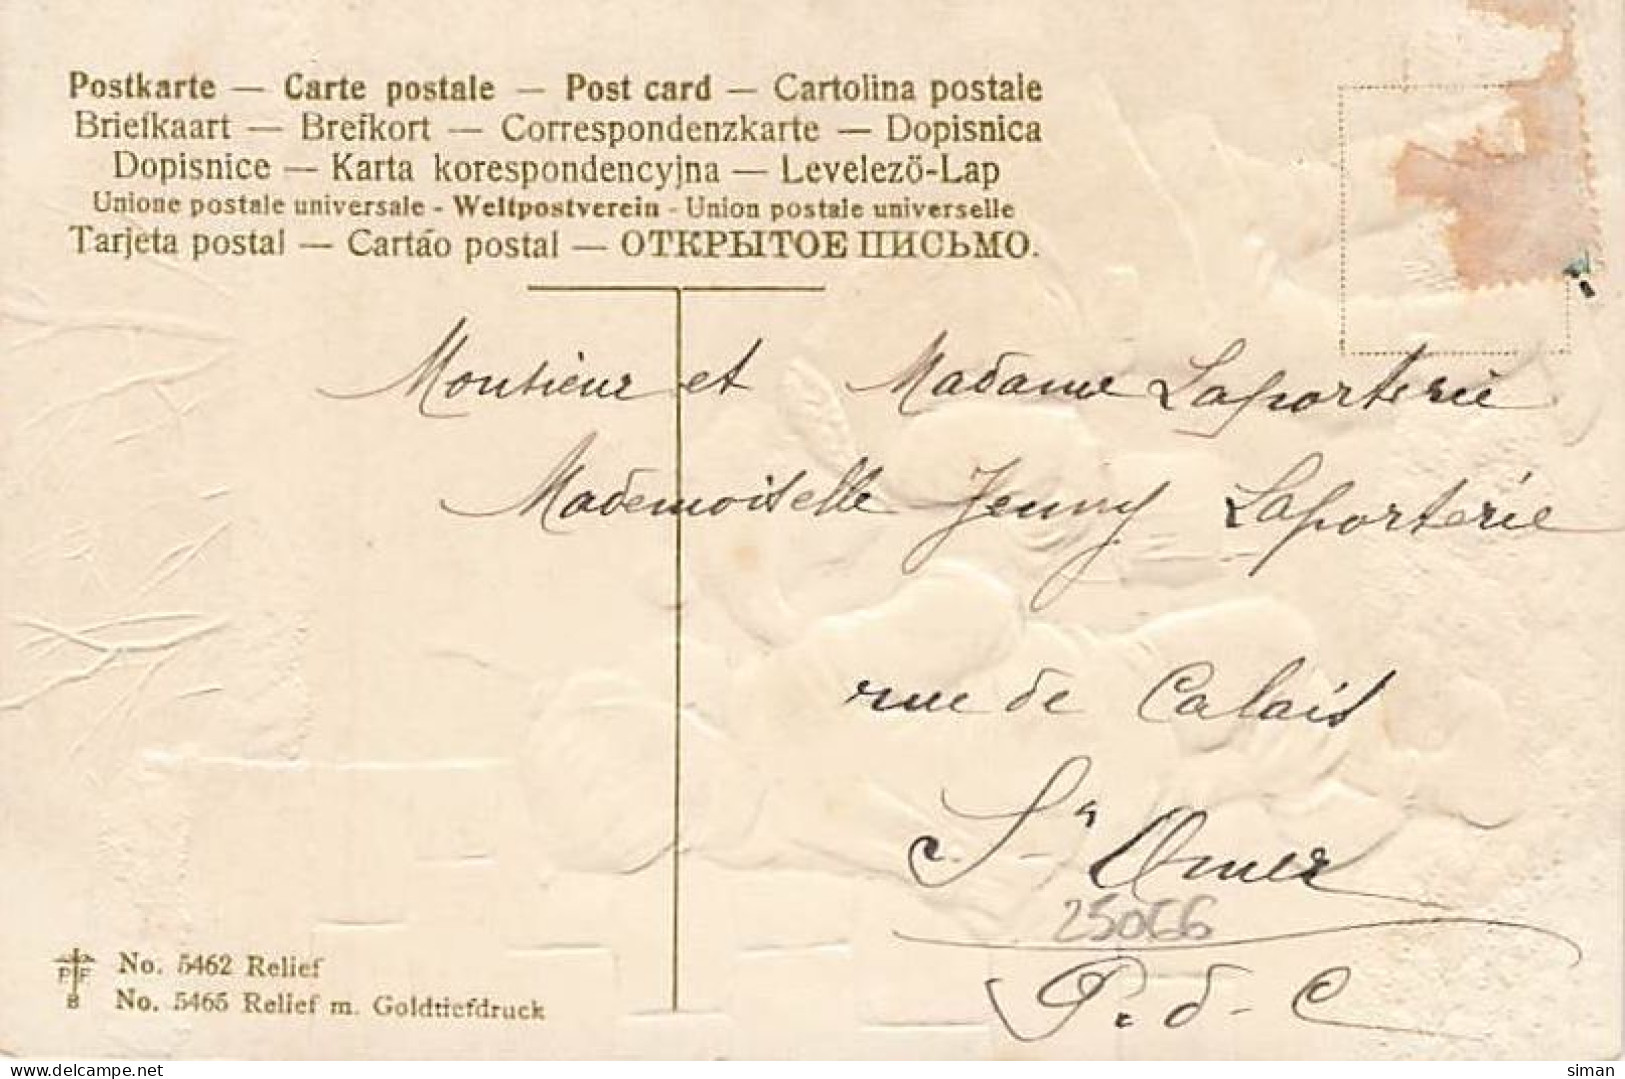 Postkarte — Carte postale — Post card — Cartolina postale
Briefkaart — Brefkort — Correspondenzkarte — Dopisnica
Dopisnice — Karta korespondencyjna — Levelező-Lap
Unione postale universale - Weltpostverein - Union postale universelle
Tarjeta postal — Cartão postal — ОТКРЫТОЕ ПИСЬМО.
Monsieur et Madame Laporterie
Mademoiselle Jenny Laporterie
rue de Calais
St Omer
25066
P. d. C
PF
B
No. 5462 Relief
No. 5465 Relief m. Goldtiefdruck
www.delcampe.net
siman